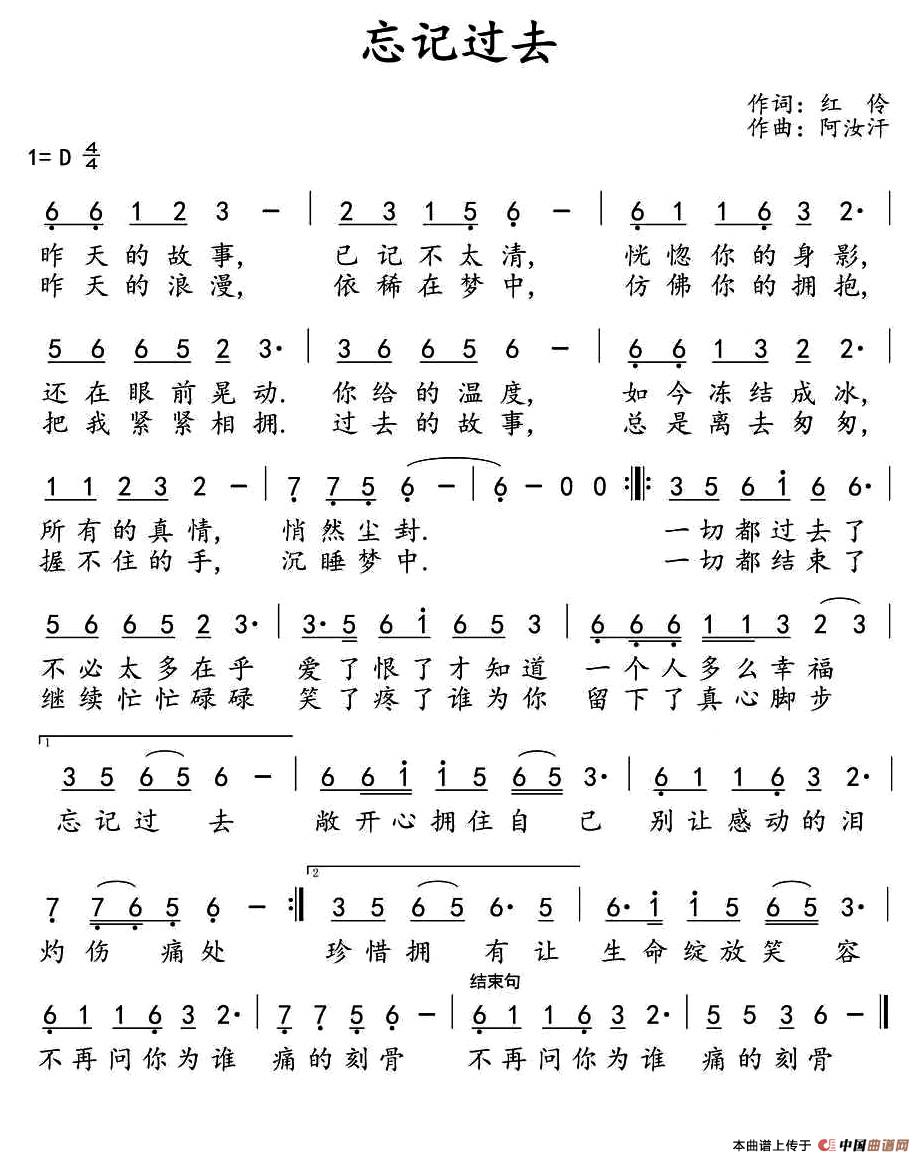 忘记过去
作词：红 伶
作曲：阿汝汗
1= D 4/4
6 6 1 2 3 － | 2 3 1 5 6 － | 6 1 1 6 3 2· |
昨天的故事， 已记不太清， 恍惚你的身影，
昨天的浪漫， 依稀在梦中， 仿佛你的拥抱，
5 6 6 5 2 3· | 3 6 6 5 6 － | 6 6 1 3 2 2· |
还在眼前晃动. 你给的温度， 如今冻结成冰，
把我紧紧相拥. 过去的故事， 总是离去匆匆，
1 1 2 3 2 － | 7 7 5 6 － | 6 － 0 0 :‖: 3 5 6 i 6 6·
所有的真情， 悄然尘封. 一切都过去了
握不住的手， 沉睡梦中. 一切都结束了
5 6 6 5 2 3· | 3· 5 6 i 6 5 3 | 6 6 6 1 1 3 2 3 |
不必太多在乎 爱了恨了才知道 一个人多么幸福
继续忙忙碌碌 笑了疼了谁为你 留下了真心脚步
1
3 5 6 5 6 － | 6 6 i i 5 6 5 3· | 6 1 1 6 3 2· |
忘记过 去 敞开心拥住自 己 别让感动的泪
2
7 7 6 5 6 － :‖ 3 5 6 5 6· 5 | 6· i i 5 6 5 3· |
灼伤 痛处 珍惜拥 有让 生命绽放笑 容
结束句
6 1 1 6 3 2· | 7 7 5 6 － | 6 1 1 6 3 2· | 5 5 3 6 － ‖
不再问你为谁 痛的刻骨 不再问你为谁 痛的刻骨
本曲谱上传于 中国曲谱网